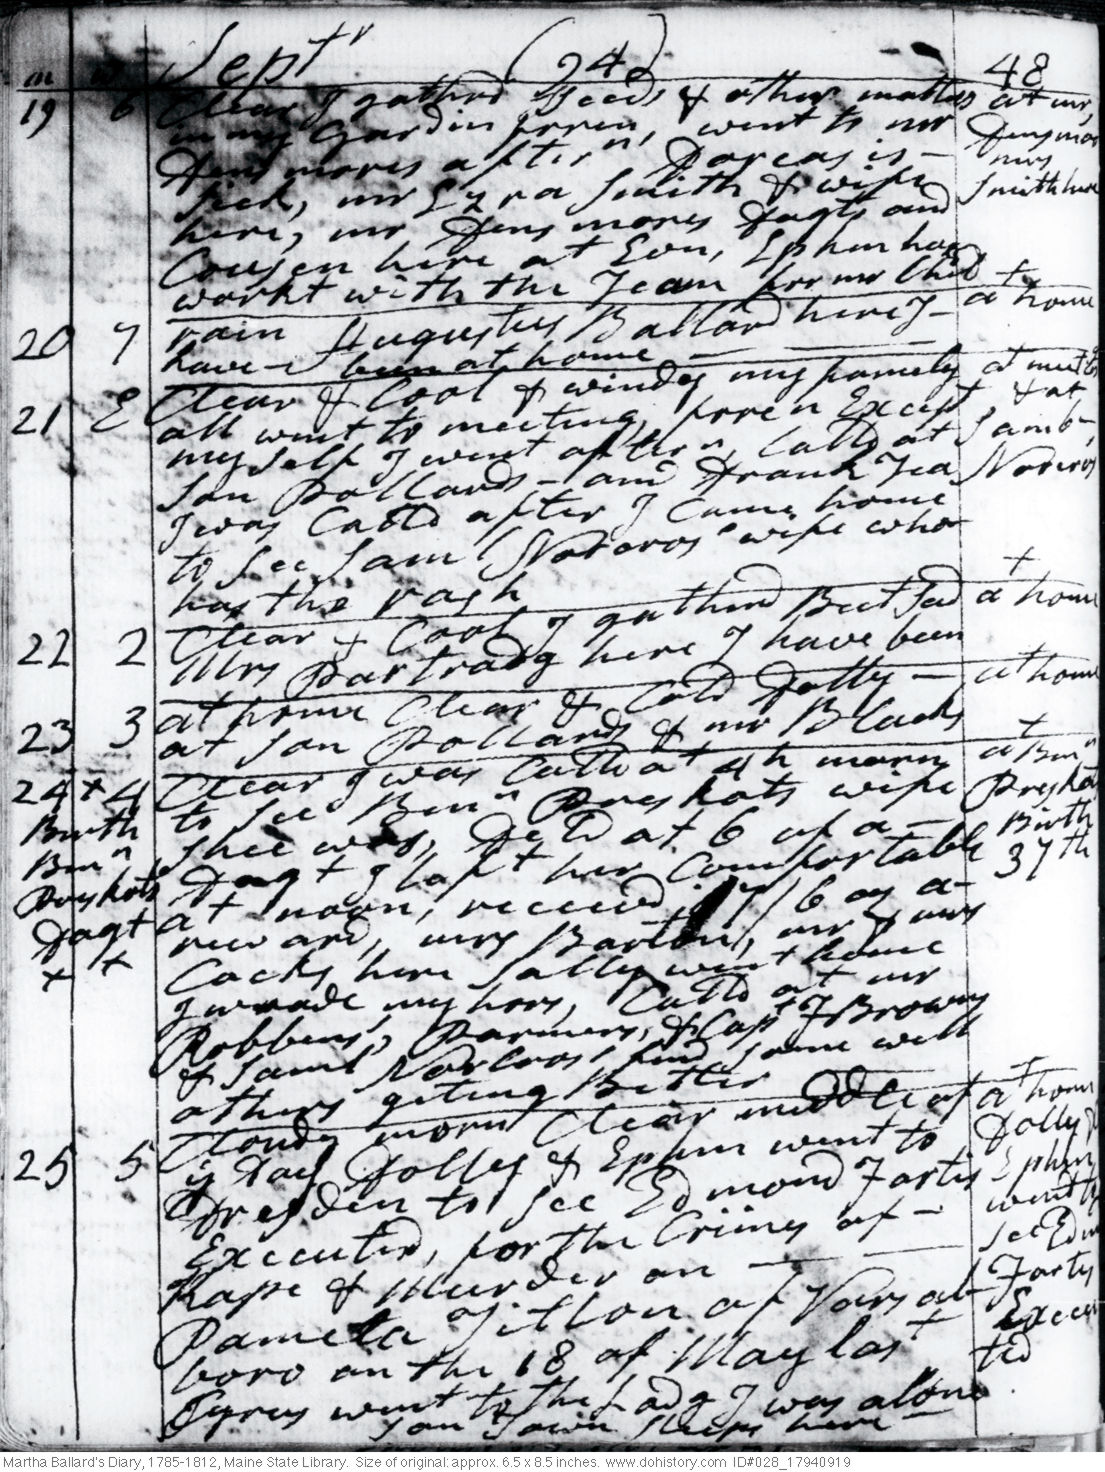 m w Sept^r (24) 48
19 6 Clear I gathrd Seeds & other matters at mr
in my Gardin fore n, went to mr Densmoo
Densmores after^n, Dorcas is - mrs
Sick, mr Ezra Smith & wife Smith here
here, mr Densmores Dagts and
Cousen here at Evn, Ephm has
workt with the Team for mr Child
20 7 rain Augustus Ballard here, I - at home
have - been at home
21 E Clear & Cool & windy my famely at meetg
all went to meeting, forren Except & at
my Self I went after^n, Calld at Saml
Son Pollards - and Drank Tea Norcros
I was Calld after I Came home
to See Saml Norcros' wife who
has the rash
22 2 Clear & Cool I gathrd Beet Sed at home
Mrs Partradg here I have been
23 3 at home Clear & Cold Dolly - at home
at Son Pollards & mr Blacks
24 x 4 Clear I was Calld at 4 h morn at Bn^n
Birth to See Ben^n Preskots wife Preskots
Ben^n Shee was, Deld at 6 of a - Birth
Preskots Dagt I left her Comfortable 37th
Dagt at noon, received /6 as a -
x x reward, mrs Barton, mr & mrs
Cocks here Sally went home
I made my hors, Calld at mr
Robbens, Parmers, & Capt J Browns
& Saml Norcros' find Some well
others geting Better
25 5 Cloudy morn Clear middle of at home
ye Day Dolley & Ephm went to Dolly &
Dresden to See Edmond Fortis Ephm
Executed, for the Crimes of - went to
Rape & Murder on See Edm
Pamela Tilton of Vorsal Fortis
boro on the 18 of May last Execu
Cyrus went to the Lodg I was alone ted
Son Town Sleeps here
Martha Ballard's Diary, 1785-1812, Maine State Library. Size of original: approx. 6.5 x 8.5 inches. www.dohistory.com ID#028_17940919